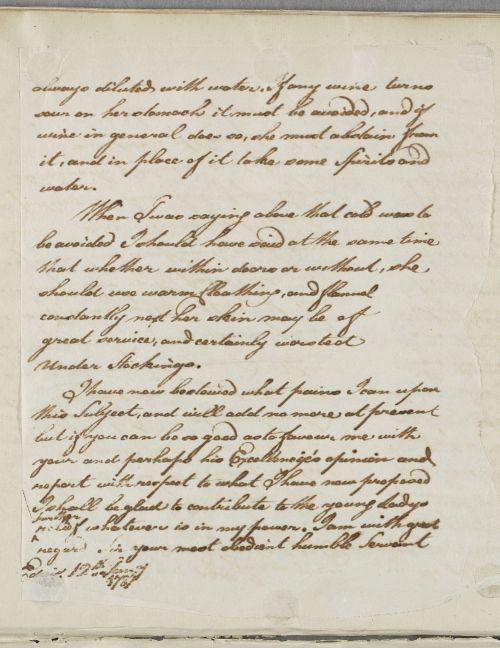 always diluted with water. If any wine turns
sour on her stomach it must be avoided, and if
wine in general does so, she must abstain from
it, and in place of it take some Spirits and
water.
When I was saying above that cold was to
be avoided I should have said at the same time
that whether within doors or without, she
should use warm Cloathing, and flannel
constantly next her skin may be of
great service, and certainly worsted
Under Stockings.
I have now bestowed what pains I can upon
this Subject, and will add no more at present
but if you can be so good as to favour me with
your and perhaps his Excellency's opinion and
report with respect to what I have now proposed
I shall be glad to contribute to the young Ladys
further relief whatever is in my power. I am with great
regard Sir your most obedient humble Servant
12th